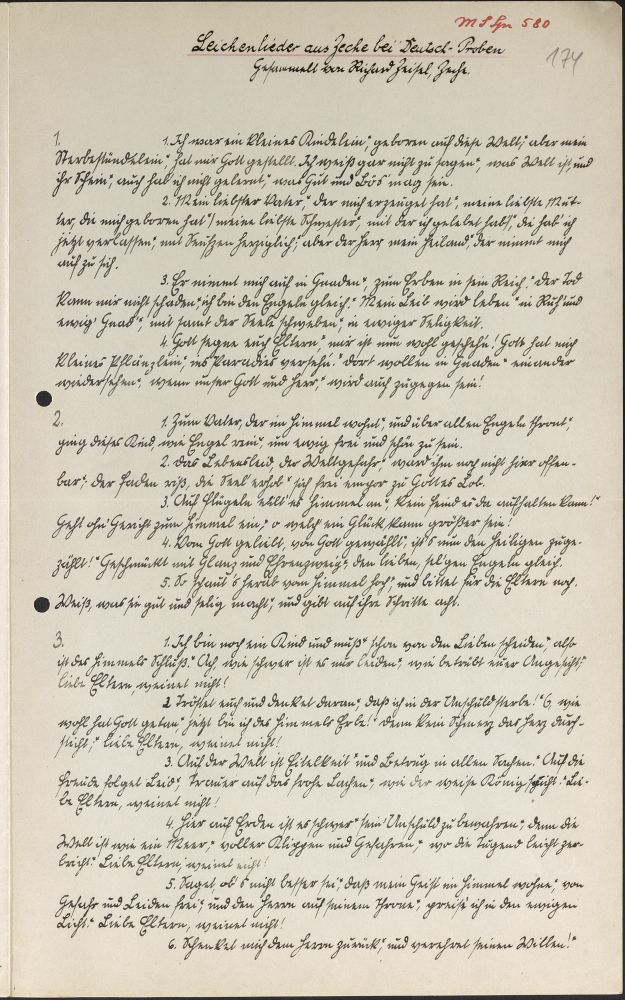 MS Spr 580
174
Leichenlieder aus Zeche bei Deutsch-Proben
Gesammelt von Richard Zeisel, Zeche.
1. 1. Ich war ein kleines Kindelein," geboren auf diese Welt;" aber mein
Sterbestündelein" hat mir Gott gestellt. Ich weiß gar nicht zu sagen", was Welt ist, und
ihr Schein," auch hab ich nicht gelernt," was Gut und Bös' mag sein.
2. Mein liebster Vater," der mich erzeuget hat", meine liebste Mut-
ter, die mich geboren hat"/ meine liebste Schwester", mit der ich gelebet hab/", die hab' ich
jetzt verlassen," mit Seufzen herziglich;" aber der Herr, mein Heiland," der nimmt mich
auf zu sich.
3. Er nimmt mich auf in Gnaden", zum Erben in sein Reich." Der Tod
kann mir nicht schaden," ich bin den Engeln gleich." Mein Leib wird leben" in Ruh und
ewig' Gnad'", mit samt der Seele schweben" in ewiger Seligkeit.
4. Gott segne euch Eltern," mir ist nun wohl geschehn! Gott hat mich
kleines Pflänzlein," ins Paradies versehn." Dort wollen in Gnaden" einander
wiedersehen", wenn unser Gott und Herr," wird auch zugegen sein!
2. 1. Zum Vater, der im Himmel wohnt," und über allen Engeln thront,"
ging dieses Kind, wie Engel rein," um ewig frei und schön zu sein.
2. Das Lebensleid, der Weltgefahr," ward ihm noch nicht hier offen-
bar"; der Faden riß, die Seel' erhob" sich frei empor zu Gottes Lob.
3. Auf Flügeln eilt' es Himmel an," kein Feind es da aufhalten kann!"
Geht ohn' Gericht zum Himmel ein," o welch' ein Glück kann größer sein!
4. Von Gott geliebt, von Gott gewählt," ist's nun den Heiligen zuge-
zählt!" Geschmückt mit Glanz und Ehrenzweig", den lieben, sel'gen Engeln gleich.
5. So schaut's herab vom Himmel hoch," und bittet für die Eltern noch.
Weiß, was sie gut und selig macht," und gibt auf ihre Schritte acht.
3. 1. Ich bin noch ein Kind und muß" schon von den Lieben scheiden," also
ist des Himmels Schluß." Ach, wie schwer ist es mir leiden," wie betrübt euer Angesicht,"
liebe Eltern, weinet nicht!
2. Tröstet euch und denket daran;" daß ich in der Unschuld sterbe!" O, wie
wohl hat Gott getan," jetzt bin ich des Himmels Erbe!" Denn kein Schmerz das Herz durch-
sticht;" liebe Eltern, weinet nicht!
3. Auf der Welt ist Eitelkeit" und Betrug in allen Sachen." Auf die
Freude folget Leid," Trauer auf das frohe Lachen", wie der weise König spricht." Lie-
be Eltern, weinet nicht!
4. Hier auf Erden ist es schwer" sein' Unschuld zu bewahren;" denn die
Welt ist wie ein Meer," voller Klippen und Gefahren," wo die Tugend leicht zer-
bricht." Liebe Eltern, weinet nicht!
5. Saget, ob's nicht besser sei," daß mein Geist im Himmel wohne," von
Gefahr und Leiden frei," und den Herrn auf seinem Throne," preise ich in den ewigen
Licht." Liebe Eltern, weinet nicht!
6. Schenket mich dem Herrn zurück," und verehret seinen Willen!"